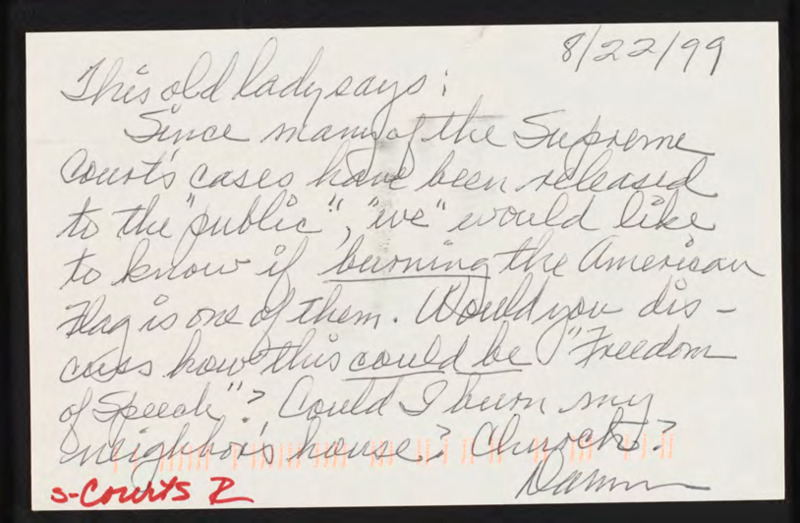 8/22/99
This old lady says:
Since many of the Supreme
Court's cases have been released
to the "public", "we" would like
to know if burning the American
Flag is one of them. Would you dis-
cuss how this could be "Freedom
of Speech"? Could I burn my
neighbor's house? Church?
S-Courts R